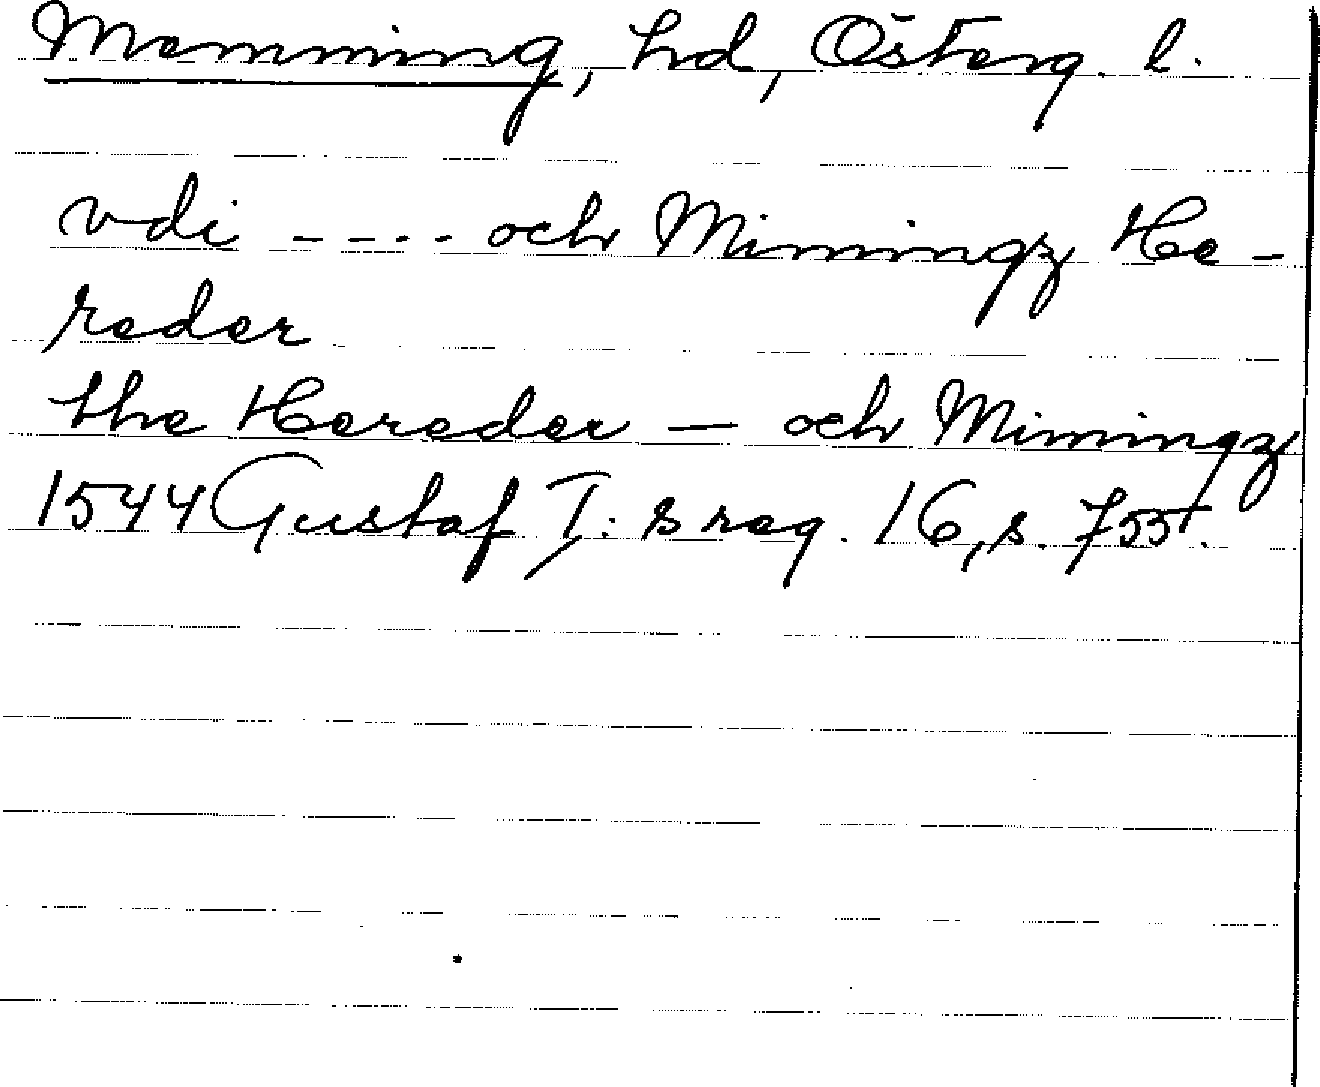 Memming, hd, Österg. l.
vdi ---- och Mimingz He-
reder
the Hereder — och Mimingz
1544 Gustaf I:s reg. 16, s. 755.